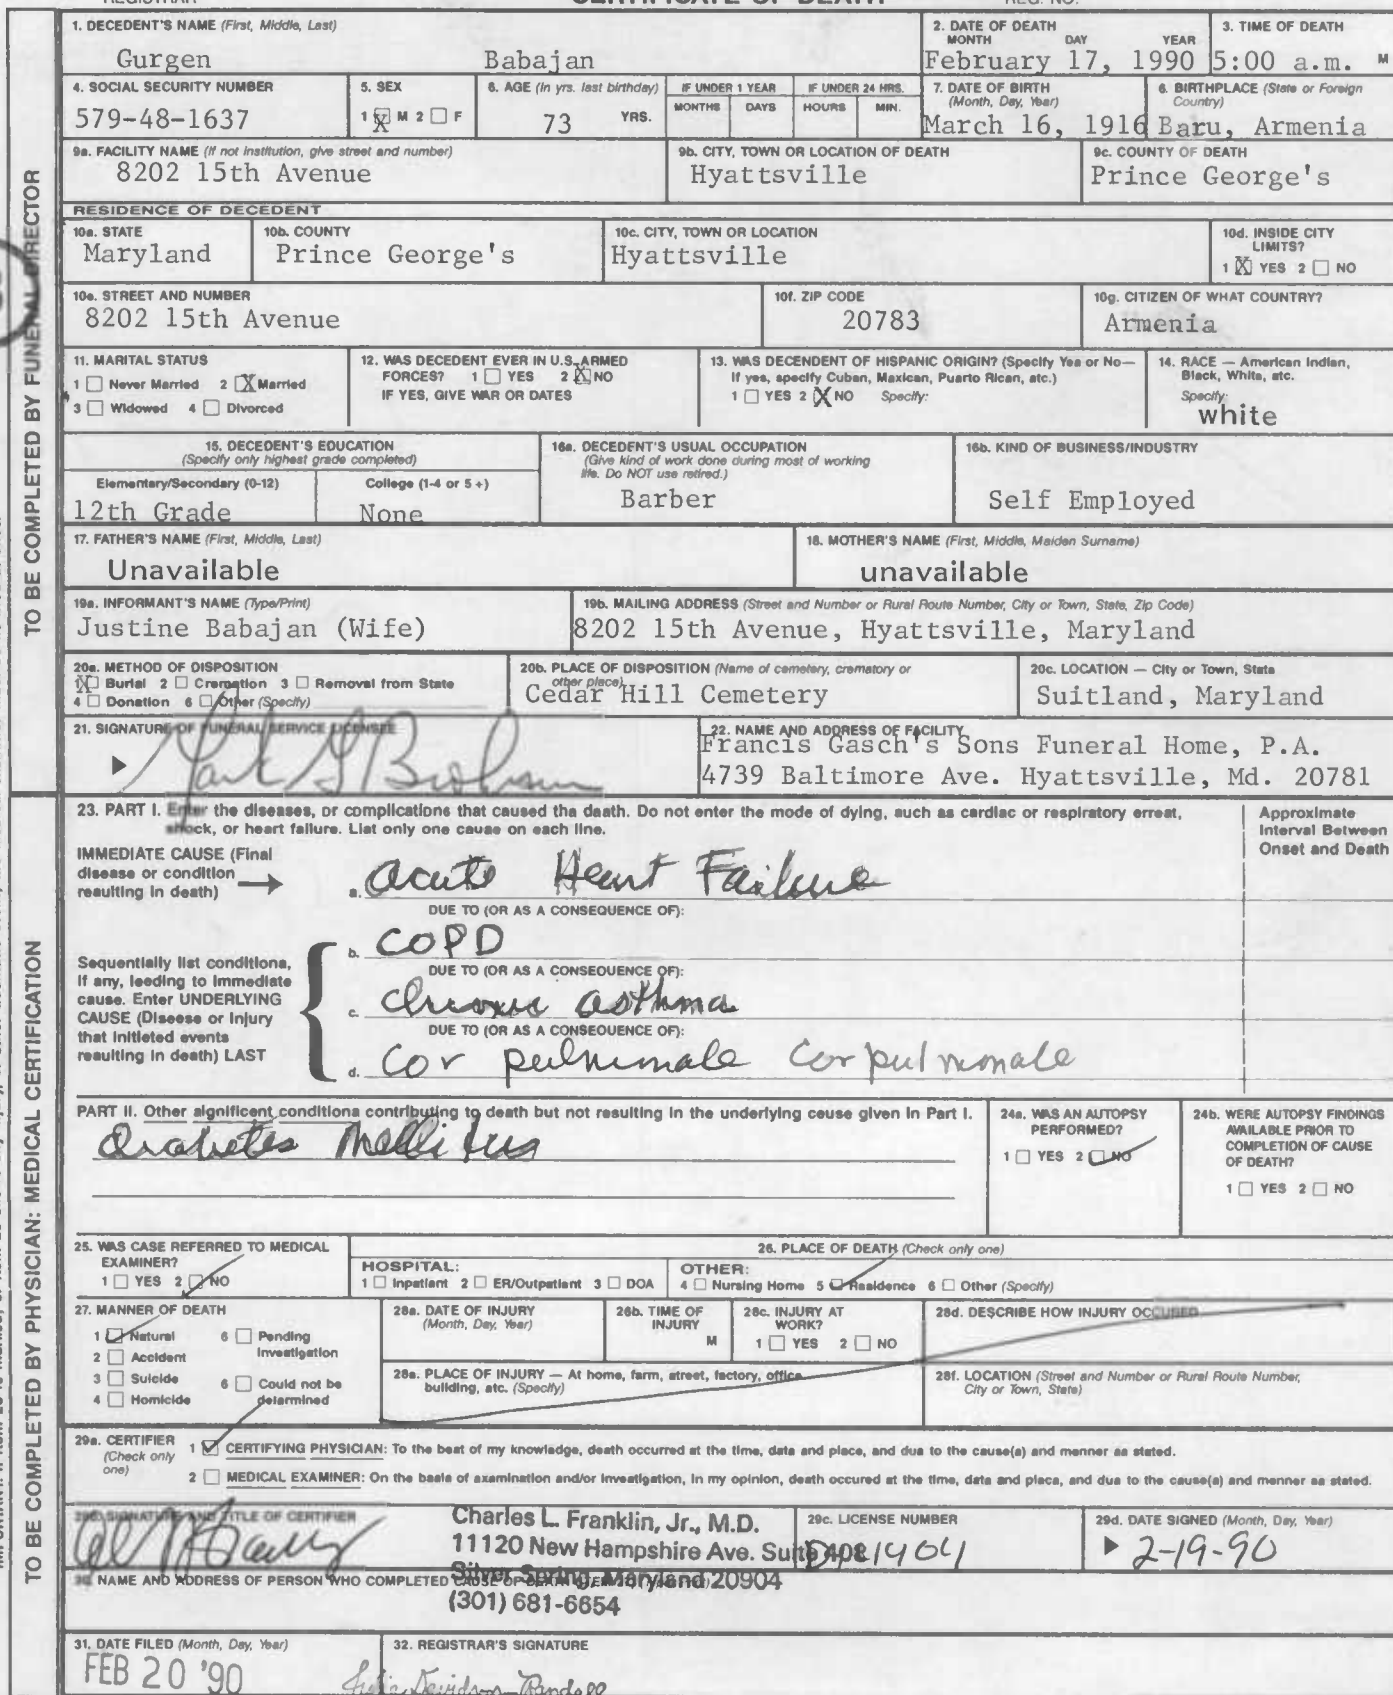 REGISTRAR CERTIFICATE OF DEATH REG. NO.
1. DECEDENT'S NAME (First, Middle, Last)
Gurgen Babajan
2. DATE OF DEATH
MONTH DAY YEAR
February 17, 1990
3. TIME OF DEATH
5:00 a.m. M
4. SOCIAL SECURITY NUMBER
579-48-1637
5. SEX
1 X M 2 F
6. AGE (In yrs. last birthday)
73 YRS.
IF UNDER 1 YEAR
MONTHS DAYS
IF UNDER 24 HRS.
HOURS MIN.
7. DATE OF BIRTH
(Month, Day, Year)
March 16, 1916
8. BIRTHPLACE (State or Foreign
Country)
Baru, Armenia
9a. FACILITY NAME (If not institution, give street and number)
8202 15th Avenue
9b. CITY, TOWN OR LOCATION OF DEATH
Hyattsville
9c. COUNTY OF DEATH
Prince George's
RESIDENCE OF DECEDENT
10a. STATE
Maryland
10b. COUNTY
Prince George's
10c. CITY, TOWN OR LOCATION
Hyattsville
10d. INSIDE CITY
LIMITS?
1 X YES 2 NO
10e. STREET AND NUMBER
8202 15th Avenue
10f. ZIP CODE
20783
10g. CITIZEN OF WHAT COUNTRY?
Armenia
11. MARITAL STATUS
1 Never Married 2 X Married
3 Widowed 4 Divorced
12. WAS DECEDENT EVER IN U.S. ARMED
FORCES? 1 YES 2 X NO
IF YES, GIVE WAR OR DATES
13. WAS DECENDENT OF HISPANIC ORIGIN? (Specify Yes or No—
If yes, specify Cuban, Mexican, Puerto Rican, etc.)
1 YES 2 X NO Specify:
14. RACE — American Indian,
Black, White, etc.
Specify:
white
15. DECEDENT'S EDUCATION
(Specify only highest grade completed)
Elementary/Secondary (0-12) College (1-4 or 5+)
12th Grade None
16a. DECEDENT'S USUAL OCCUPATION
(Give kind of work done during most of working
life. Do NOT use retired.)
Barber
16b. KIND OF BUSINESS/INDUSTRY
Self Employed
17. FATHER'S NAME (First, Middle, Last)
Unavailable
18. MOTHER'S NAME (First, Middle, Maiden Surname)
unavailable
19a. INFORMANT'S NAME (Type/Print)
Justine Babajan (Wife)
19b. MAILING ADDRESS (Street and Number or Rural Route Number, City or Town, State, Zip Code)
8202 15th Avenue, Hyattsville, Maryland
20a. METHOD OF DISPOSITION
1 X Burial 2 Cremation 3 Removal from State
4 Donation 6 Other (Specify)
20b. PLACE OF DISPOSITION (Name of cemetery, crematory or
other place)
Cedar Hill Cemetery
20c. LOCATION — City or Town, State
Suitland, Maryland
21. SIGNATURE OF FUNERAL SERVICE LICENSEE
22. NAME AND ADDRESS OF FACILITY
Francis Gasch's Sons Funeral Home, P.A.
4739 Baltimore Ave. Hyattsville, Md. 20781
TO BE COMPLETED BY FUNERAL DIRECTOR
23. PART I. Enter the diseases, or complications that caused the death. Do not enter the mode of dying, such as cardiac or respiratory arrest,
shock, or heart failure. List only one cause on each line.
Approximate
Interval Between
Onset and Death
IMMEDIATE CAUSE (Final
disease or condition
resulting in death)
a. acute Heart Failure
DUE TO (OR AS A CONSEQUENCE OF):
b. COPD
DUE TO (OR AS A CONSEQUENCE OF):
c. chronic asthma
DUE TO (OR AS A CONSEQUENCE OF):
d. Cor pulmonale Cor pulmonale
Sequentially list conditions,
if any, leading to immediate
cause. Enter UNDERLYING
CAUSE (Disease or injury
that initiated events
resulting in death) LAST
PART II. Other significant conditions contributing to death but not resulting in the underlying cause given in Part I.
Diabetes Mellitus
24a. WAS AN AUTOPSY
PERFORMED?
1 YES 2 NO
24b. WERE AUTOPSY FINDINGS
AVAILABLE PRIOR TO
COMPLETION OF CAUSE
OF DEATH?
1 YES 2 NO
25. WAS CASE REFERRED TO MEDICAL
EXAMINER?
1 YES 2 NO
26. PLACE OF DEATH (Check only one)
HOSPITAL:
1 Inpatient 2 ER/Outpatient 3 DOA
OTHER:
4 Nursing Home 5 Residence 6 Other (Specify)
27. MANNER OF DEATH
1 Natural 6 Pending
Investigation
2 Accident
3 Suicide 6 Could not be
4 Homicide determined
28a. DATE OF INJURY
(Month, Day, Year)
28b. TIME OF
INJURY
M
28c. INJURY AT
WORK?
1 YES 2 NO
28d. DESCRIBE HOW INJURY OCCURED
28e. PLACE OF INJURY — At home, farm, street, factory, office
building, etc. (Specify)
28f. LOCATION (Street and Number or Rural Route Number,
City or Town, State)
29a. CERTIFIER
(Check only
one)
1 CERTIFYING PHYSICIAN: To the best of my knowledge, death occurred at the time, date and place, and due to the cause(s) and manner as stated.
2 MEDICAL EXAMINER: On the basis of examination and/or investigation, in my opinion, death occured at the time, date and place, and due to the cause(s) and manner as stated.
29b. SIGNATURE AND TITLE OF CERTIFIER
Charles L. Franklin, Jr., M.D.
11120 New Hampshire Ave. Suite 408
Silver Spring, Maryland 20904
(301) 681-6654
29c. LICENSE NUMBER
29d. DATE SIGNED (Month, Day, Year)
2-19-90
30. NAME AND ADDRESS OF PERSON WHO COMPLETED CAUSE OF DEATH
31. DATE FILED (Month, Day, Year)
FEB 20 '90
32. REGISTRAR'S SIGNATURE
Julia Davidson-Randall
TO BE COMPLETED BY PHYSICIAN: MEDICAL CERTIFICATION